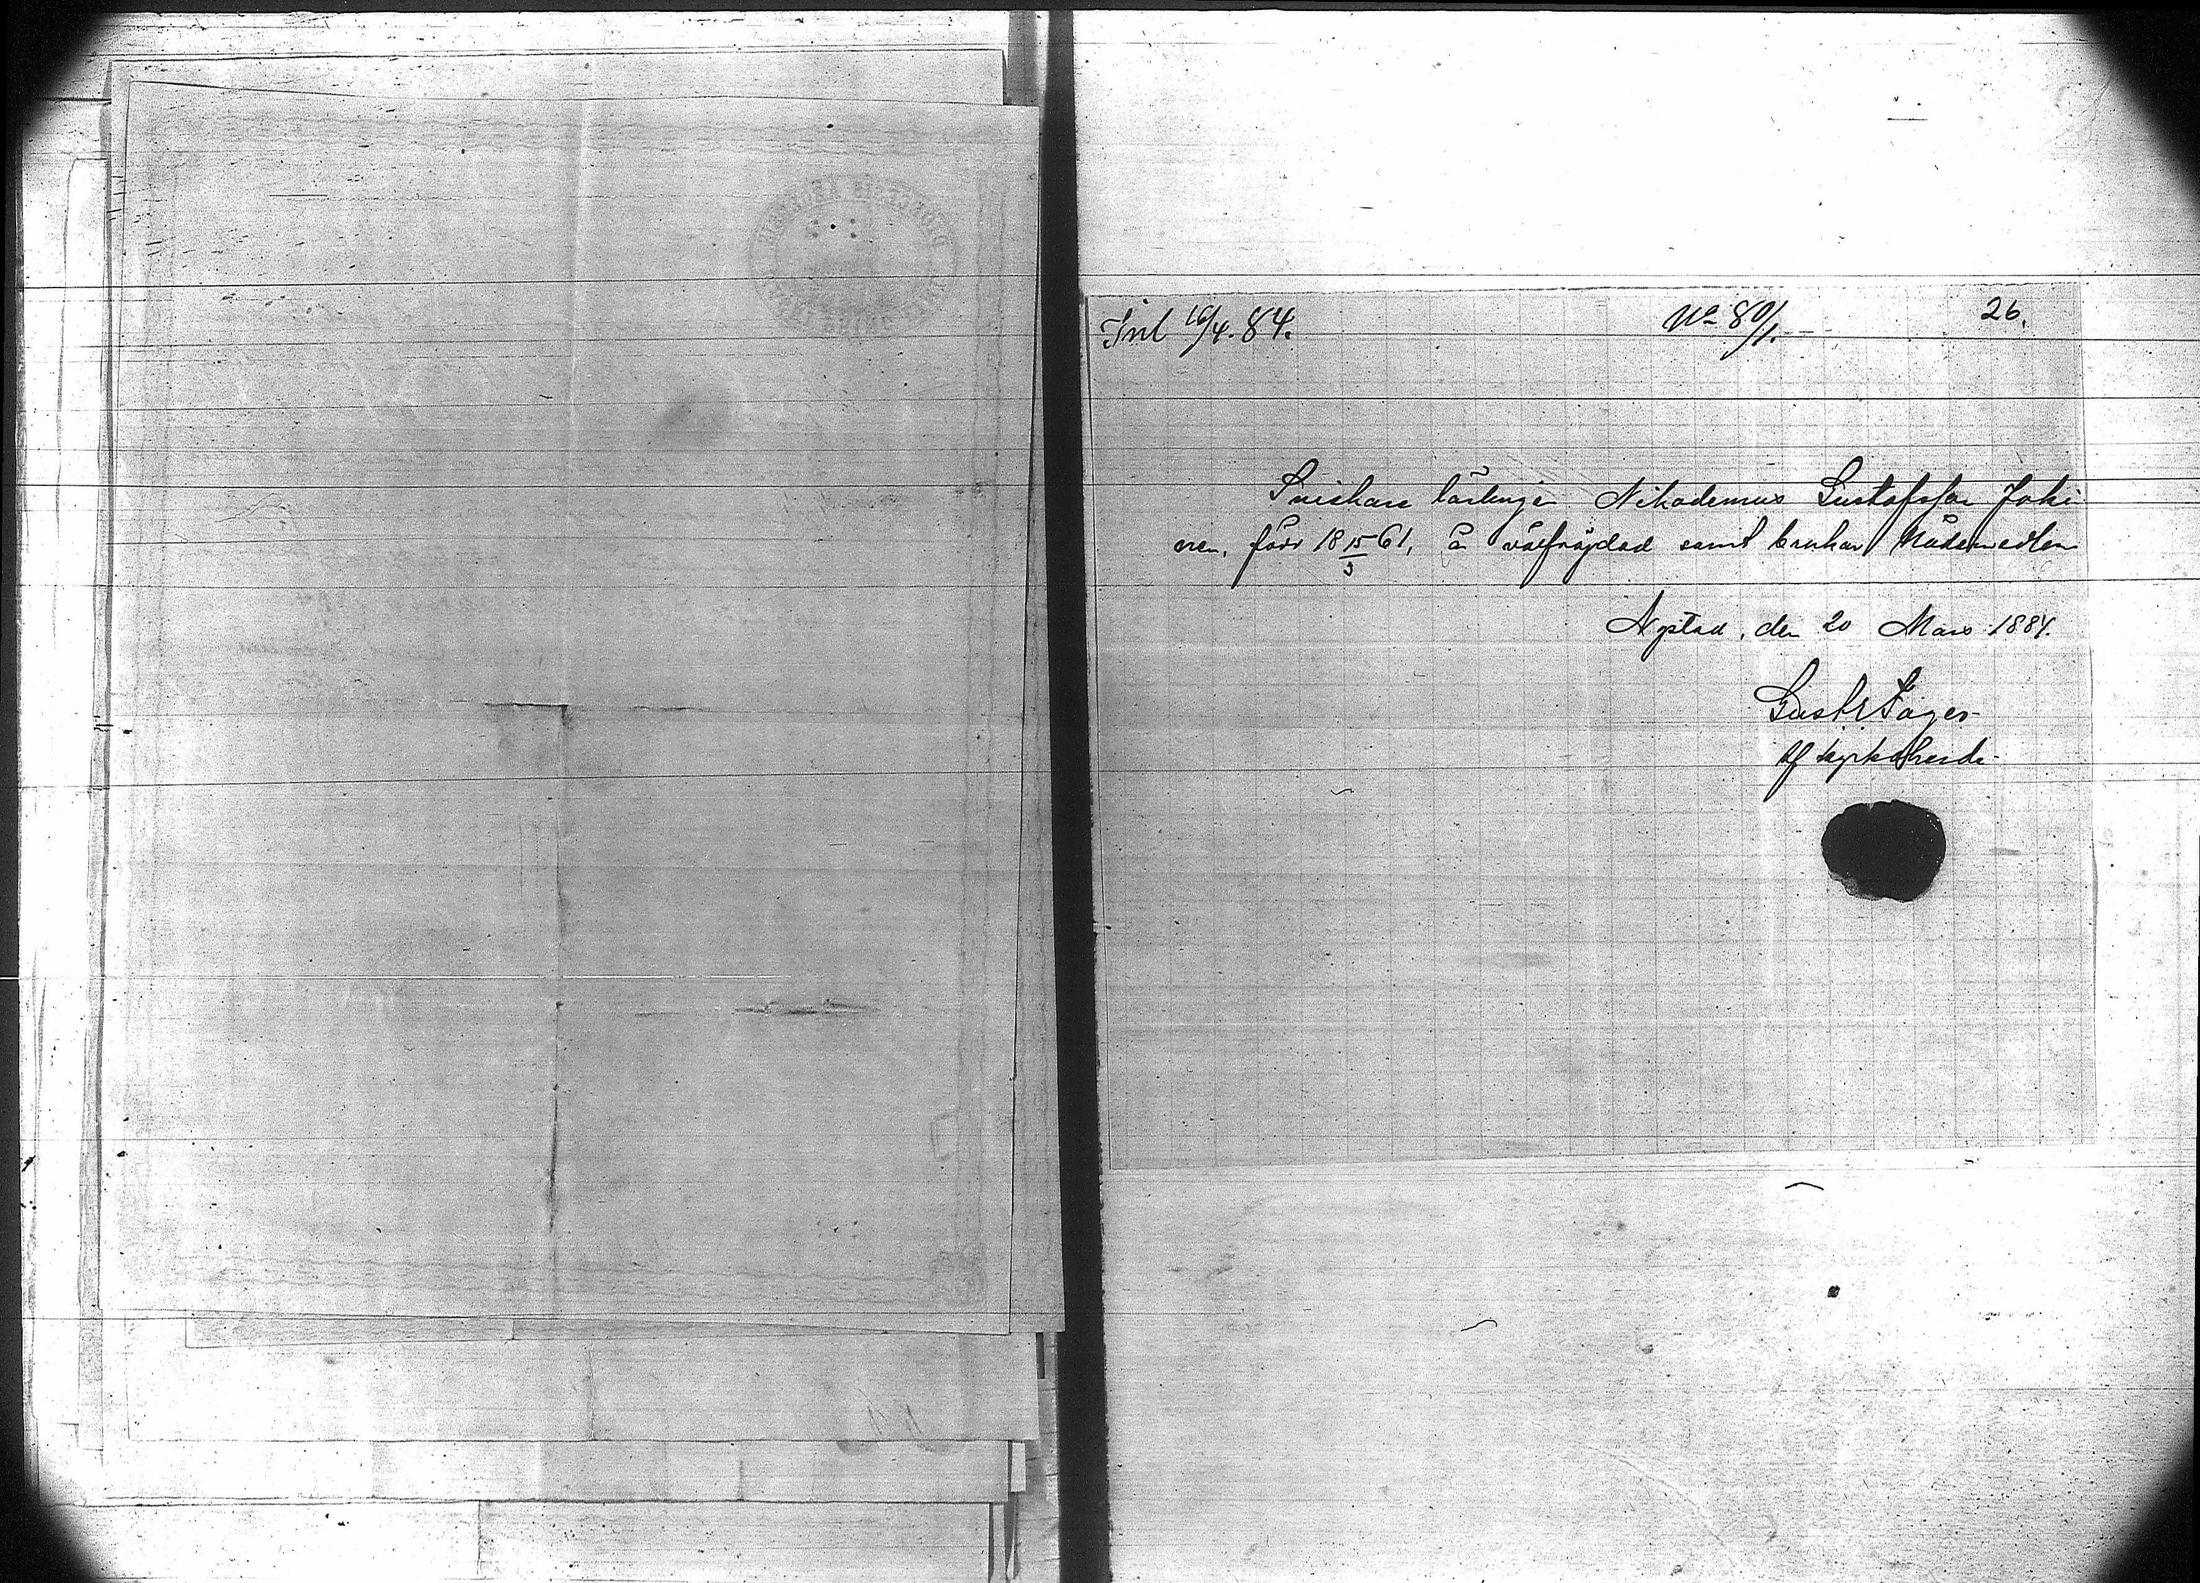 Inl 16/4. 84.
No 80/1.
26.
Snickare lärlingen Nikodemus Gustafsson Joki
nen, född 18 15/3 61, är välfräjdad samt brukar Nådemedlen
Nystad, den 20 Mars 1884.
Gust
Af kyrkoherde